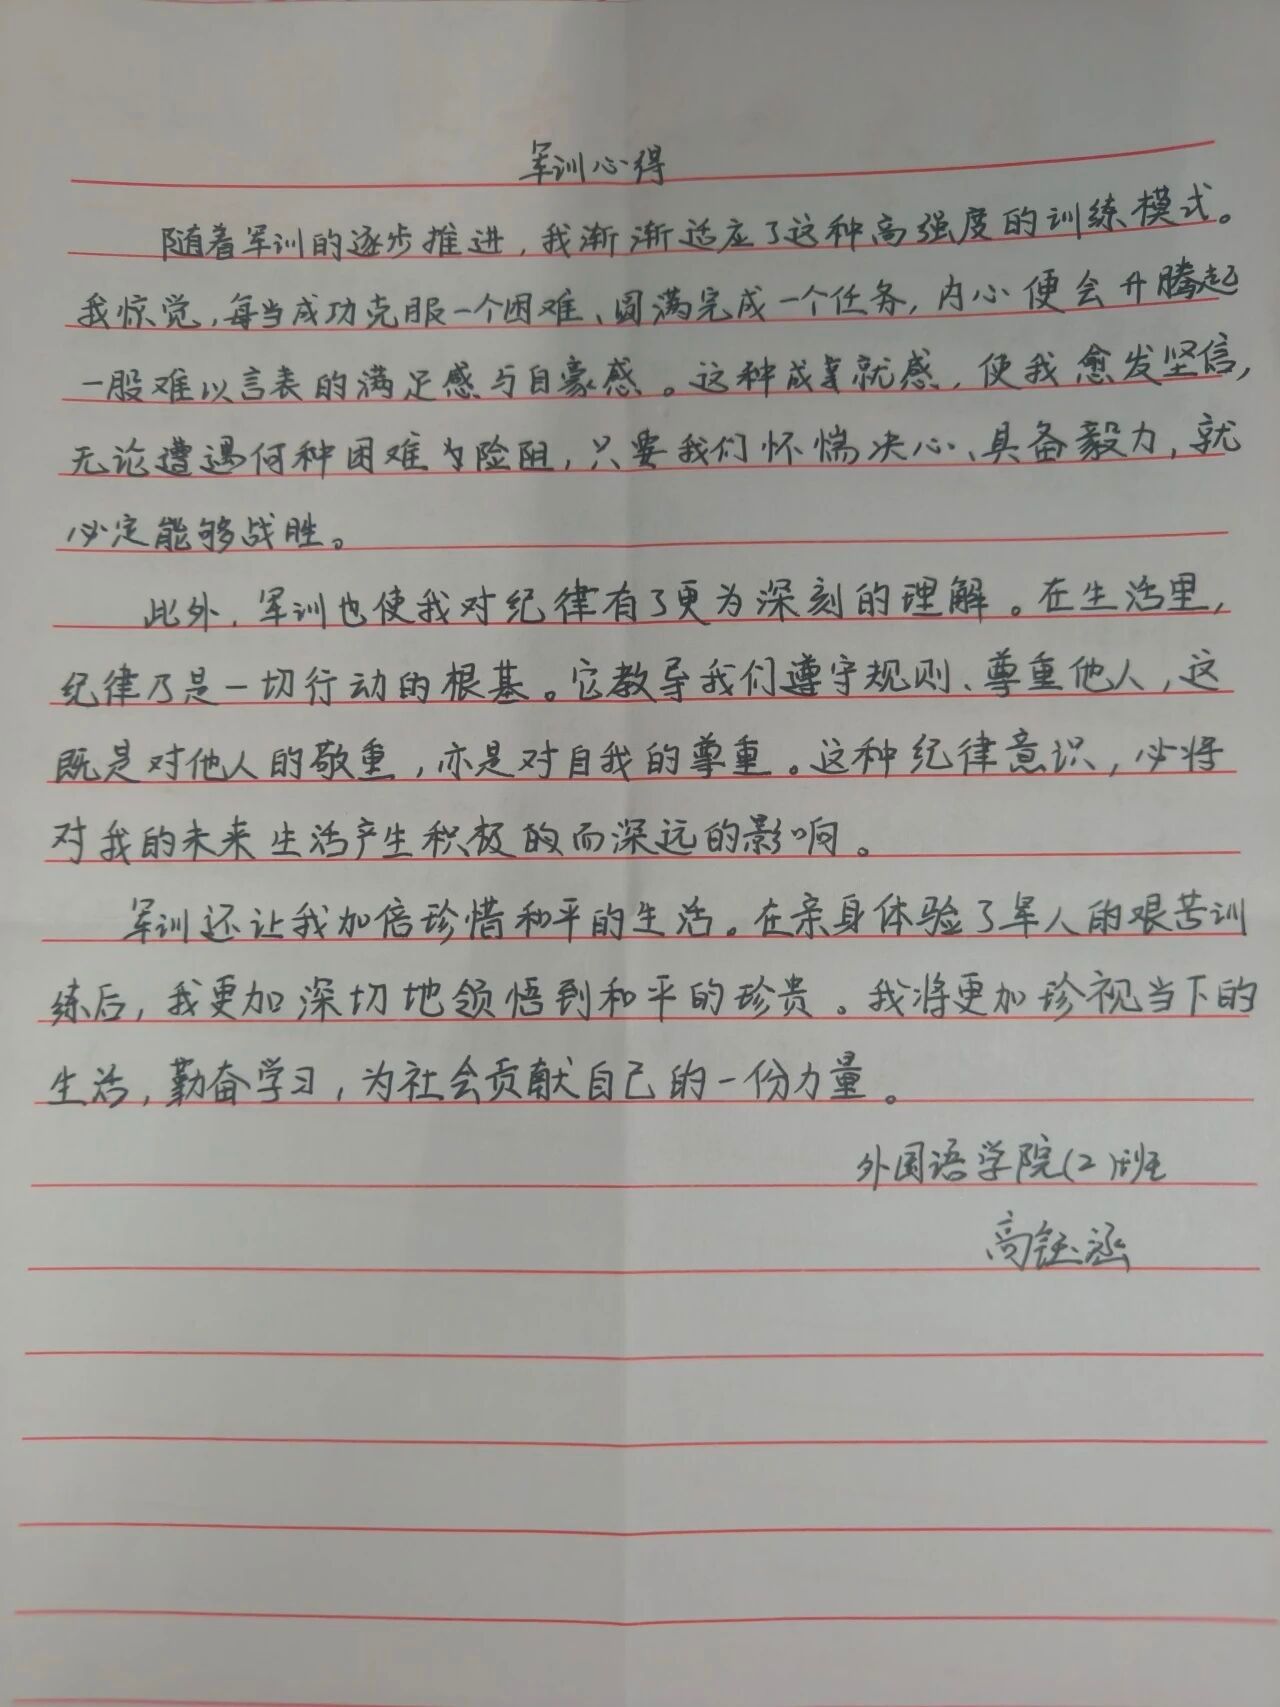 军训心得
随着军训的逐步推进,我渐渐适应了这种高强度的训练模式。
我惊觉,每当成功克服一个困难、圆满完成一个任务,内心便会升腾起
一股难以言表的满足感与自豪感。这种成就感,使我愈发坚信,
无论遭遇何种困难与险阻,只要我们怀惴决心、具备毅力,就
必定能够战胜。
此外,军训也使我对纪律有了更为深刻的理解。在生活里,
纪律乃是一切行动的根基。它教导我们遵守规则、尊重他人,这
既是对他人的敬重,亦是对自我的尊重。这种纪律意识,必将
对我的未来生活产生积极的而深远的影响。
军训还让我加倍珍惜和平的生活。在亲身体验了军人的艰苦训
练后,我更加深切地领悟到和平的珍贵。我将更加珍视当下的
生活,勤奋学习,为社会贡献自己的一份力量。
外国语学院(2)班
高钰涵